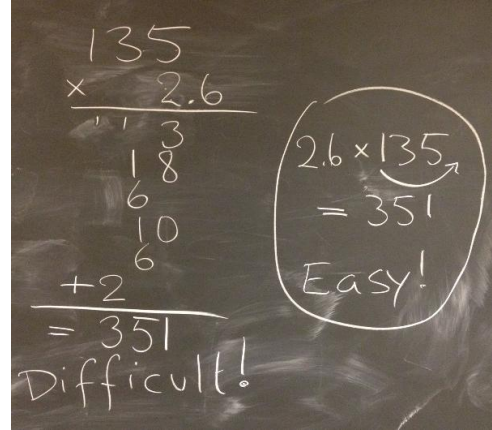 135
× 2.6
' ' 3
18
6
10
6
+2
= 351
Difficult!
2.6 × 135
= 351
Easy!